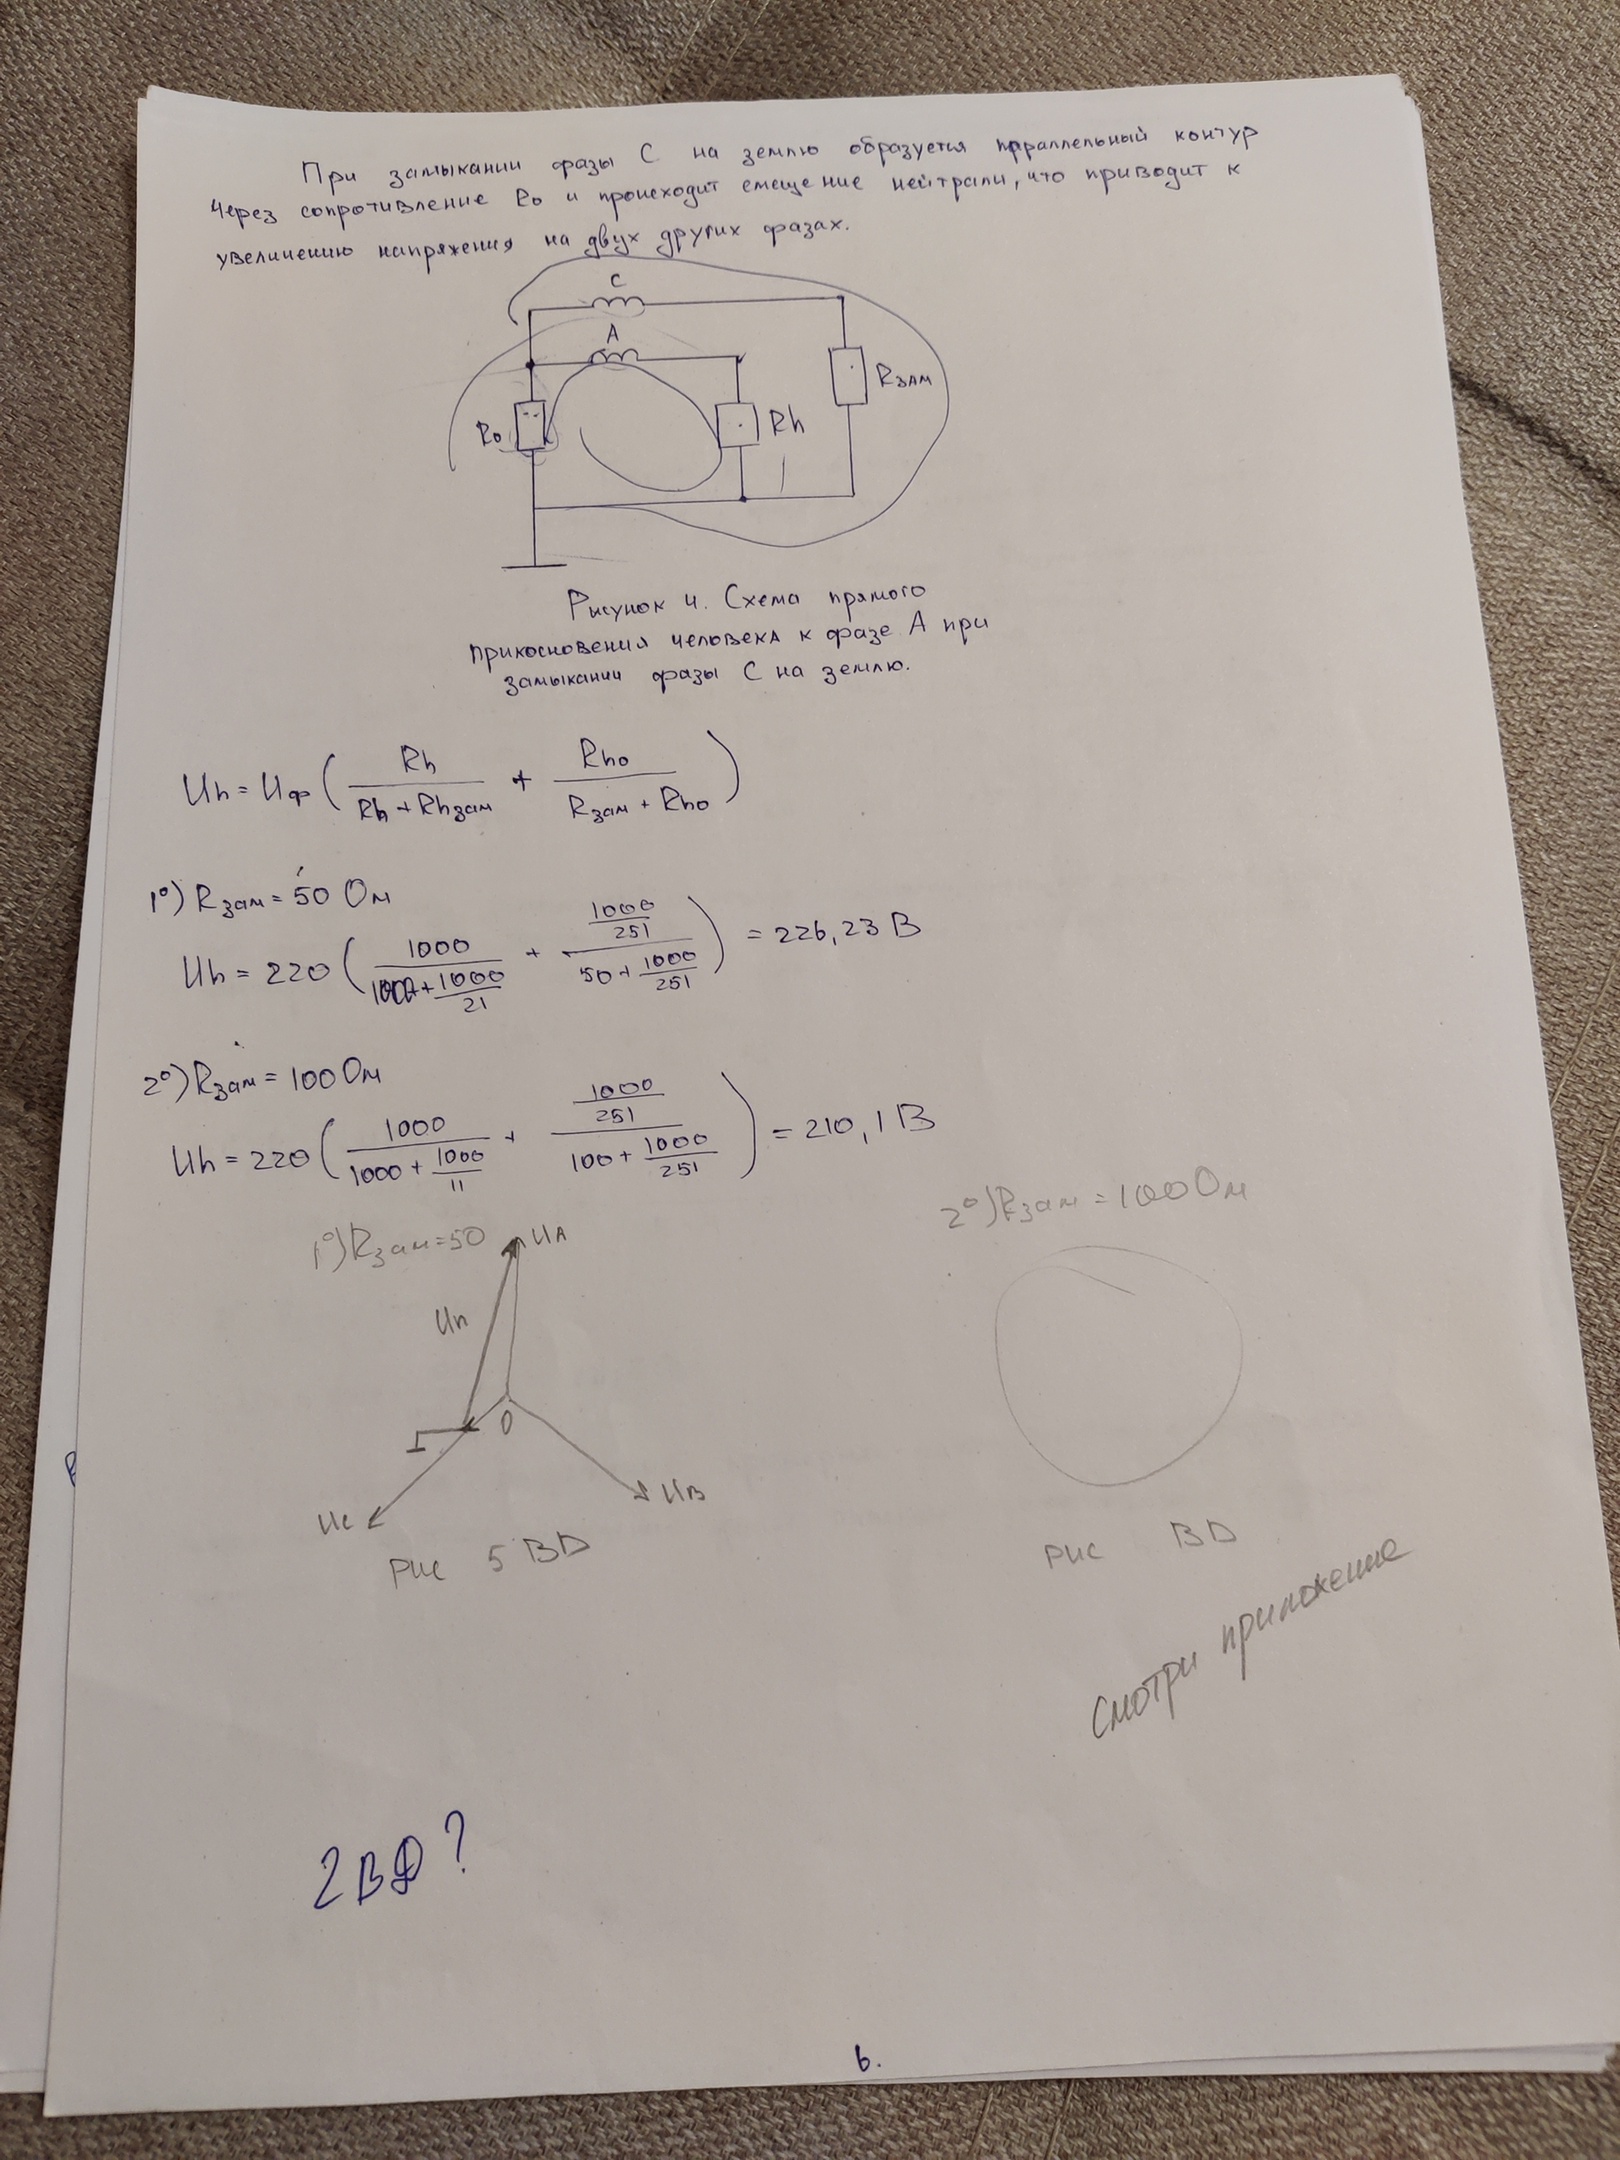 При замыкании фазы С на землю образуется прраллельный контур
через сопротивление Ro и происходит смещение нейтрали, что приводит к
увеличению напряжения на двух других фазах.
C
A
Rзам
Ro
Rh
Рисунок 4. Схема прямого
прикосновения человека к фазе А при
замыкании фазы С на землю.
Uh = Uф ( Rh / (Rh + Rhзам) + Rho / (Rзам + Rho) )
1°) Rзам = 50 Ом
Uh = 220 ( 1000 / (1000 + 1000/21) + (1000/251) / (50 + 1000/251) ) = 226,23 В
2°) Rзам = 100 Ом
Uh = 220 ( 1000 / (1000 + 1000/11) + (1000/251) / (100 + 1000/251) ) = 210,1 В
1°) Rзам = 50
UA
2°) Rзам = 100 Ом
Uh
0
UB
UC
Рис 5 ВD
Рис ВD
Смотри приложение
2ВД?
6.